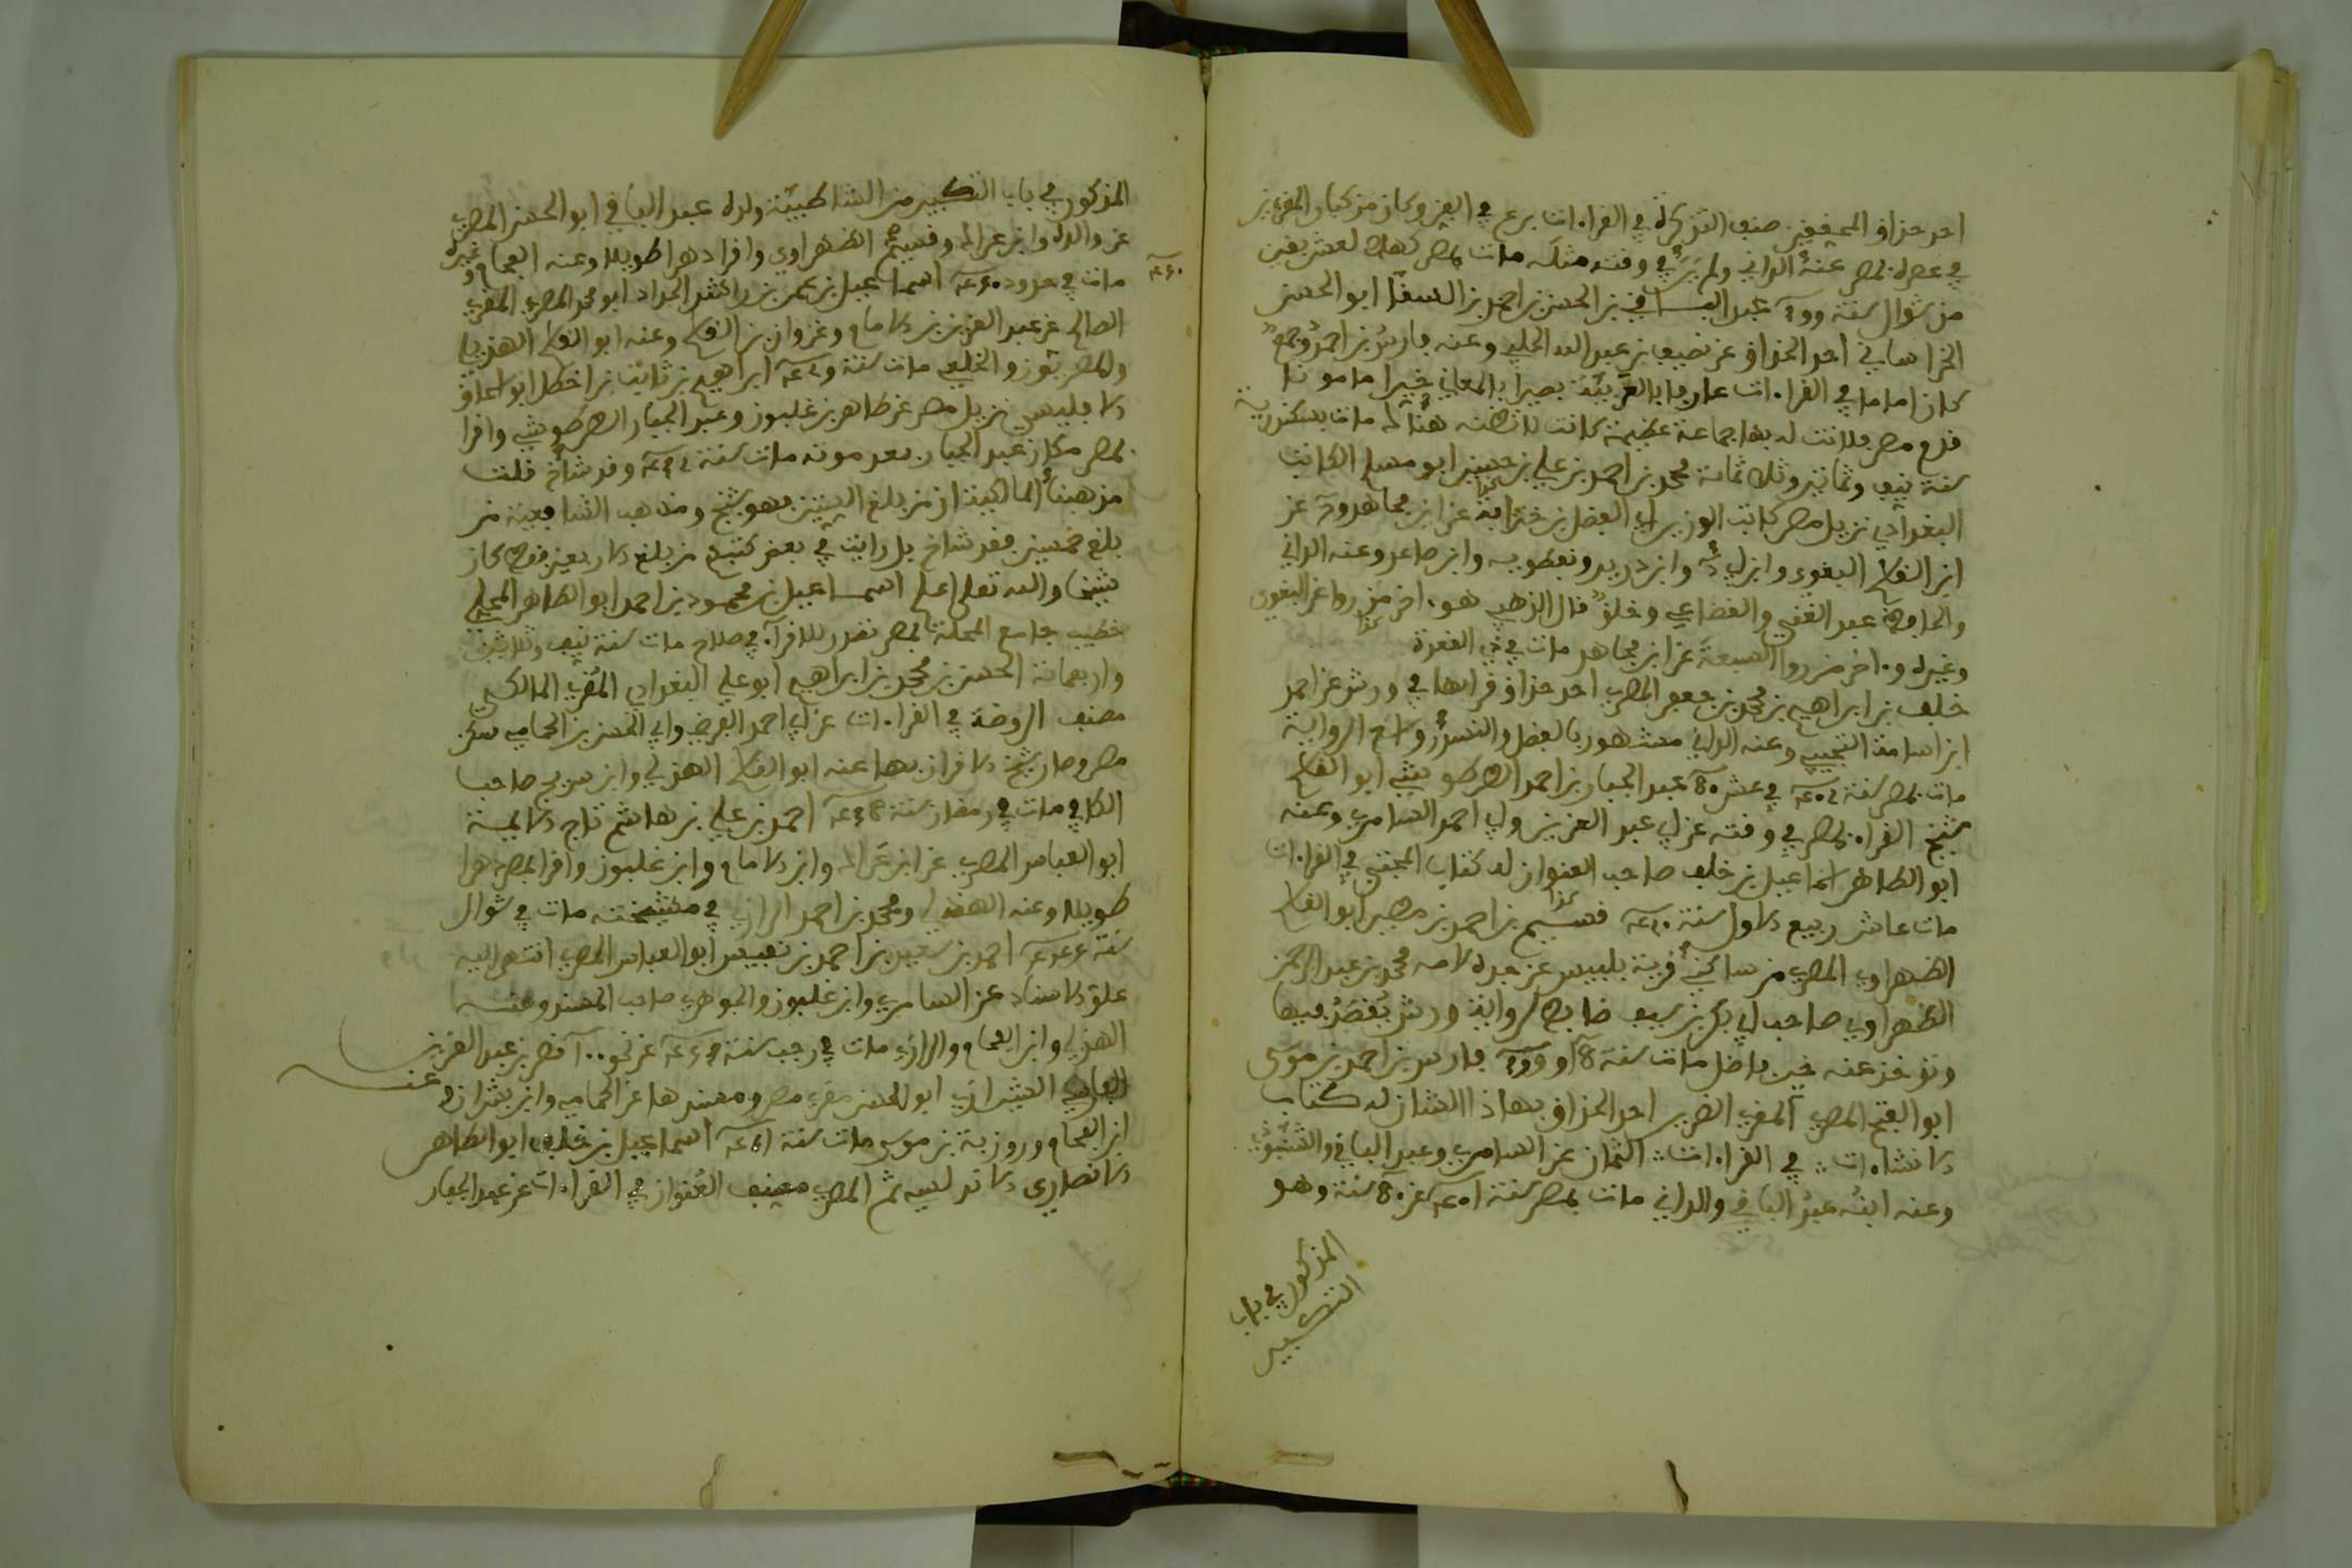 احد حذاق المحققين صنف التذكرة في القراءات برع في الفن وكان من كبار المقرءين
في عصره بمصر عنه الداني ولم ير في وقته مثله مات بمصر كهلا لعشر بقين
من شوال سنة عبد الباقي بن الحسن بن احمد بن السقا ابو الحسن
الخراساني احد الحذاق عن نصيف بن عبد الله الحلبي وعنه فارس بن احمد وجمع
كان اماما في القراءات عارفا بالعربية بصيرا بالمعاني خيرا مامونا
قدم مصر فلانت له بها جماعة عظيمة كانت لا تظنه هنا لم مات بسكندرية
سنة نيف وثمانين وثلاثمائة محمد بن احمد بن علي بن حسين ابو مسلم الكاتب
البغدادي نزيل مصر كاتب الوزير ابي الفضل بن خنزابة عن ابن مجاهد وروى عن
ابن القاسم البغوي وابن ابي داود وابن دريد ونفطويه وابن صاعد وعنه الداني
والحافظ عبد الغني والقضاعي وخلق قال الذهبي هو ءاخر من روا عن البغوي
وغيره وءاخر من روا السبعة عن ابن مجاهد مات في ذي القعدة
خلف بن ابراهيم بن محمد بن جعفر المصري احد حذاق قراءتها في ورش عن احمد
ابن اسامة التجيبي وعنه الداني مشهور بالفضل والنسك واسع الرواية
مات بمصر سنة في عشر عبد الجبار بن احمد الطرطوشي ابو القاسم
شيخ القراء بمصر في وقته عن ابي عبد العزيز وابي احمد السامري وعنه
ابو الطاهر اسماعيل بن خلف صاحب العنوان له كتاب المجتبى في القراءات
مات عاشر ربيع الاول سنة قسيم بن احمد بن مطير ابو القاسم
الظهراوي المصري من ساكني قرية بلبيس عن جده لامه محمد بن عبد الرحمن
الظهراوي صاحب ابي بكر بن سيف ضابط لرواية ورش يقصد فيها
وتوخذ عنه خير فاضل مات سنة او فارس بن احمد بن موسى
ابو الفتح المصري المقري الضرير احد الحذاق بهاذا الشان له كتاب
الانشاءات في القراءات الثمان عن السامري وعبد الباقي والشنبوذي
وعنه ابنه عبد الباقي والداني مات بمصر سنة عن سنة وهو
المذكور في باب
التكبير
المذكور في باب التكبير من الشاطبية ولده عبد الباقي ابو الحسن المصري
عن والده وابن عراك وقسيم الظهراوي واقرا دهرا طويلا وعنه الفحام وغيره
مات في حدود اسماعيل بن عمر بن راشد الحداد ابو محمد المصري المقري
الصالح عن عبد العزيز بن الامام وغزوان بن القاسم وعنه ابو القاسم الهذلي
والمصريون والخلعي مات سنة ابراهيم بن ثابت بن اخطل ابو اسحاق
الاقليشي نزيل مصر عن طاهر بن غلبون وعبد الجبار الطرطوشي واقرا
بمصر مكان عبد الجبار بعد موته مات سنة وقد شاخ قلت
مذهبنا المالكية ان من بلغ الستين فهو شيخ ومذهب الشافعية من
بلغ خمسين فقد شاخ بل رايت في بعض كتبهم من بلغ الاربعين فقد كان
شيخا والله تعلى اعلم اسماعيل بن محمود بن احمد ابو الطاهر المحلي
خطيب جامع المحلة بمصر تصدر للاقراء في صلاح مات سنة نيف وثلاثين
واربعمائة الحسن بن محمد بن ابراهيم ابو علي البغدادي المقري المالكي
مصنف الروضة في القراءات عن ابي احمد الفرضي وابي الحسن بن الحمامي سكن
مصر وصار شيخ الاقران بها عنه ابو القاسم الهذلي وابن شريح صاحب
الكافي مات في رمضان سنة احمد بن علي بن هاشم تاج الايمة
ابو العباس المصري عن ابن عراك وابن الامام وابن غلبون واقرا بمصر دهرا
طويلا وعنه الهذلي ومحمد بن احمد الرازي في مشيخته مات في شوال
سنة احمد بن سعيد بن احمد بن نفيس ابو العباس المصري انتهى اليه
علو الاسناد عن السامري وابن غلبون والجوهري صاحب المسند وعنه
الهذلي وابن الفحام والرازي مات في رجب سنة عن نحو نصر بن عبد العزيز
الفارسي الشيرازي ابو الحسن مقري مصر ومسندها عن الحمامي وابن بشران وعنه
ابن الفحام وروزبة بن موسى مات سنة اسماعيل بن خلف ابو الطاهر
الانصاري الاندلسي ثم المصري مصنف العنوان في القراءات عن عبد الجبار